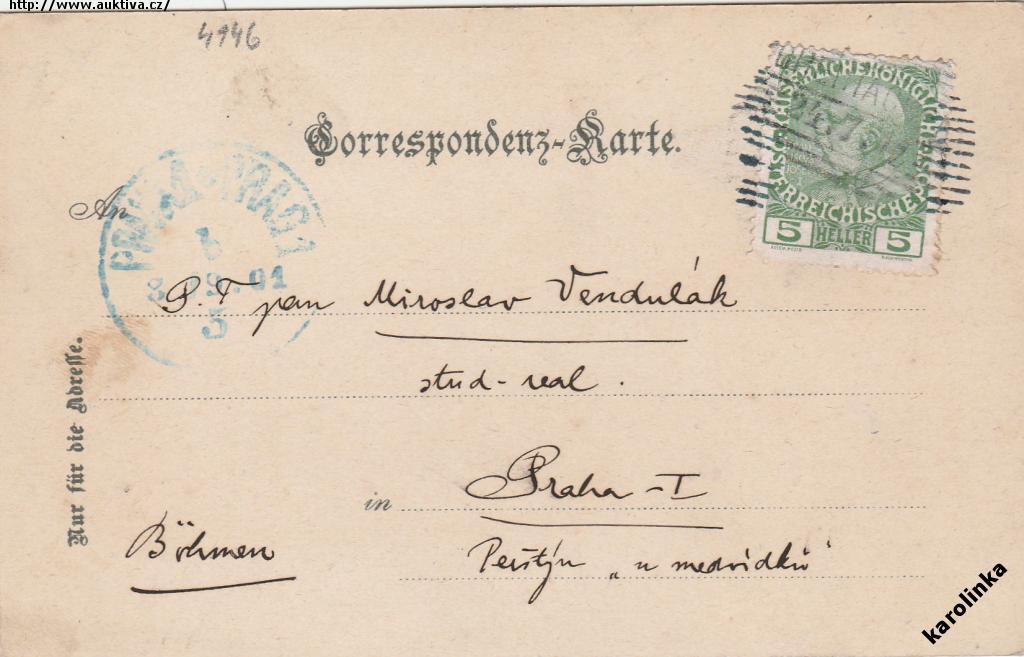 http://www.auktiva.cz/
4946
Correspondenz-Karte.
KAISERLICHE KÖNIGLICHE
ÖSTERREICHISCHE POST
5 HELLER 5
An
PRAHA PRAG 1
8 9. 01
5
P. T pan Miroslav Vendulák
stud-real.
in Praha-I
Böhmen
Perštýn „u medvídků“
Nur für die Adresse.
karolinka